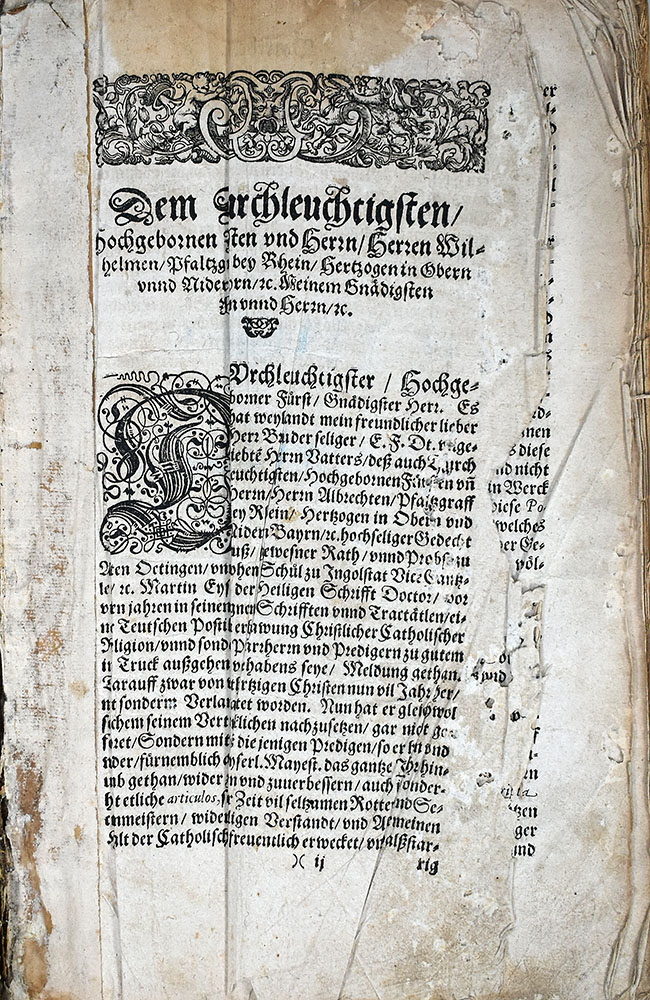 Dem urchleuchtigsten/
Hochgebornen sten vnd Herrn/ Herren Wil-
helmen/ Pfaltzg bey Rhein/ Hertzogen in Obern
vnnd Nider rn/ ꝛc. Meinem Gnädigsten
n vnnd Herrn/ ꝛc.
DVrchleuchtigster / Hochge-
borner Fürst/ Gnädigster Herr. Es
hat weylandt mein freundlicher lieber
Herr Bruder seliger/ E. F. Dt.
liebtē Herrn Vatters/ deß auch
leuchtigsten/ Hochgebornen Fürsten vñ
Herrn/ Herrn Albrechten/ Pfaltzgraff
bey Rhein/ Hertzogen in Obern vnd
Nidern Bayrn/ ꝛc. hochseliger Gedecht
nuß/ gewesner Rath/ vnnd Probst zu
Alten Oetingen/ vn ohen Schůl zu Ingolstat Vice Cantz-
le/ ꝛc. Martin Eys der Heiligen Schrifft Doctor/ vor
jahren in seinen nen Schrifften vnnd Tractätlen/ ei-
ne Teutschen Postil erbawung Christlicher Catholischer
Religion/ vnnd sond Pfarrherrn vnd Predigern zu gutem
in Truck außgehen vorhabens seye/ Meldung gethan.
Darauff zwar von hertzigen Christen nun vil Jahr her/
nt sonderm Verla get worden. Nun hat er gleichwol
sichem seinem Vert klichen nachzusetzen/ gar nicht ge-
Sondern mit die jenigen Predigen/ so er hin vnd
wider/ fürnemblich yserl. Mayest. das gantze Jhr hin-
gethan/ wider n vnd zuuerbessern/ auch sonder-
etliche articulos, Zeit vil seltzamen Rotten vnd Se-
ctenmeistern/ wider ligen Verstandt/ vnd Gemeinen
der Catholisch freuentlich erwecket/ vnd alßstar-
)( ij
rig
er
nen
s diese
nd nicht
in Werck
diese Po-
welches
er Ge-
völ-
tzen
ger
und